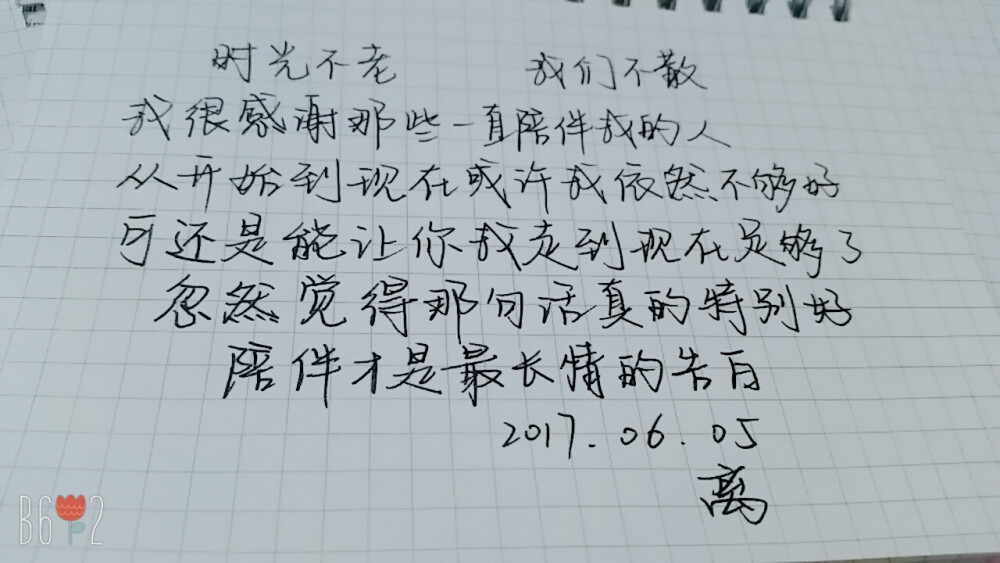 时光不老 我们不散
我很感谢那些一直陪伴我的人
从开始到现在或许我依然不够好
可还是能让你我走到现在足够了
忽然觉得那句话真的特别好
陪伴才是最长情的告白
2017.06.05
离
B612